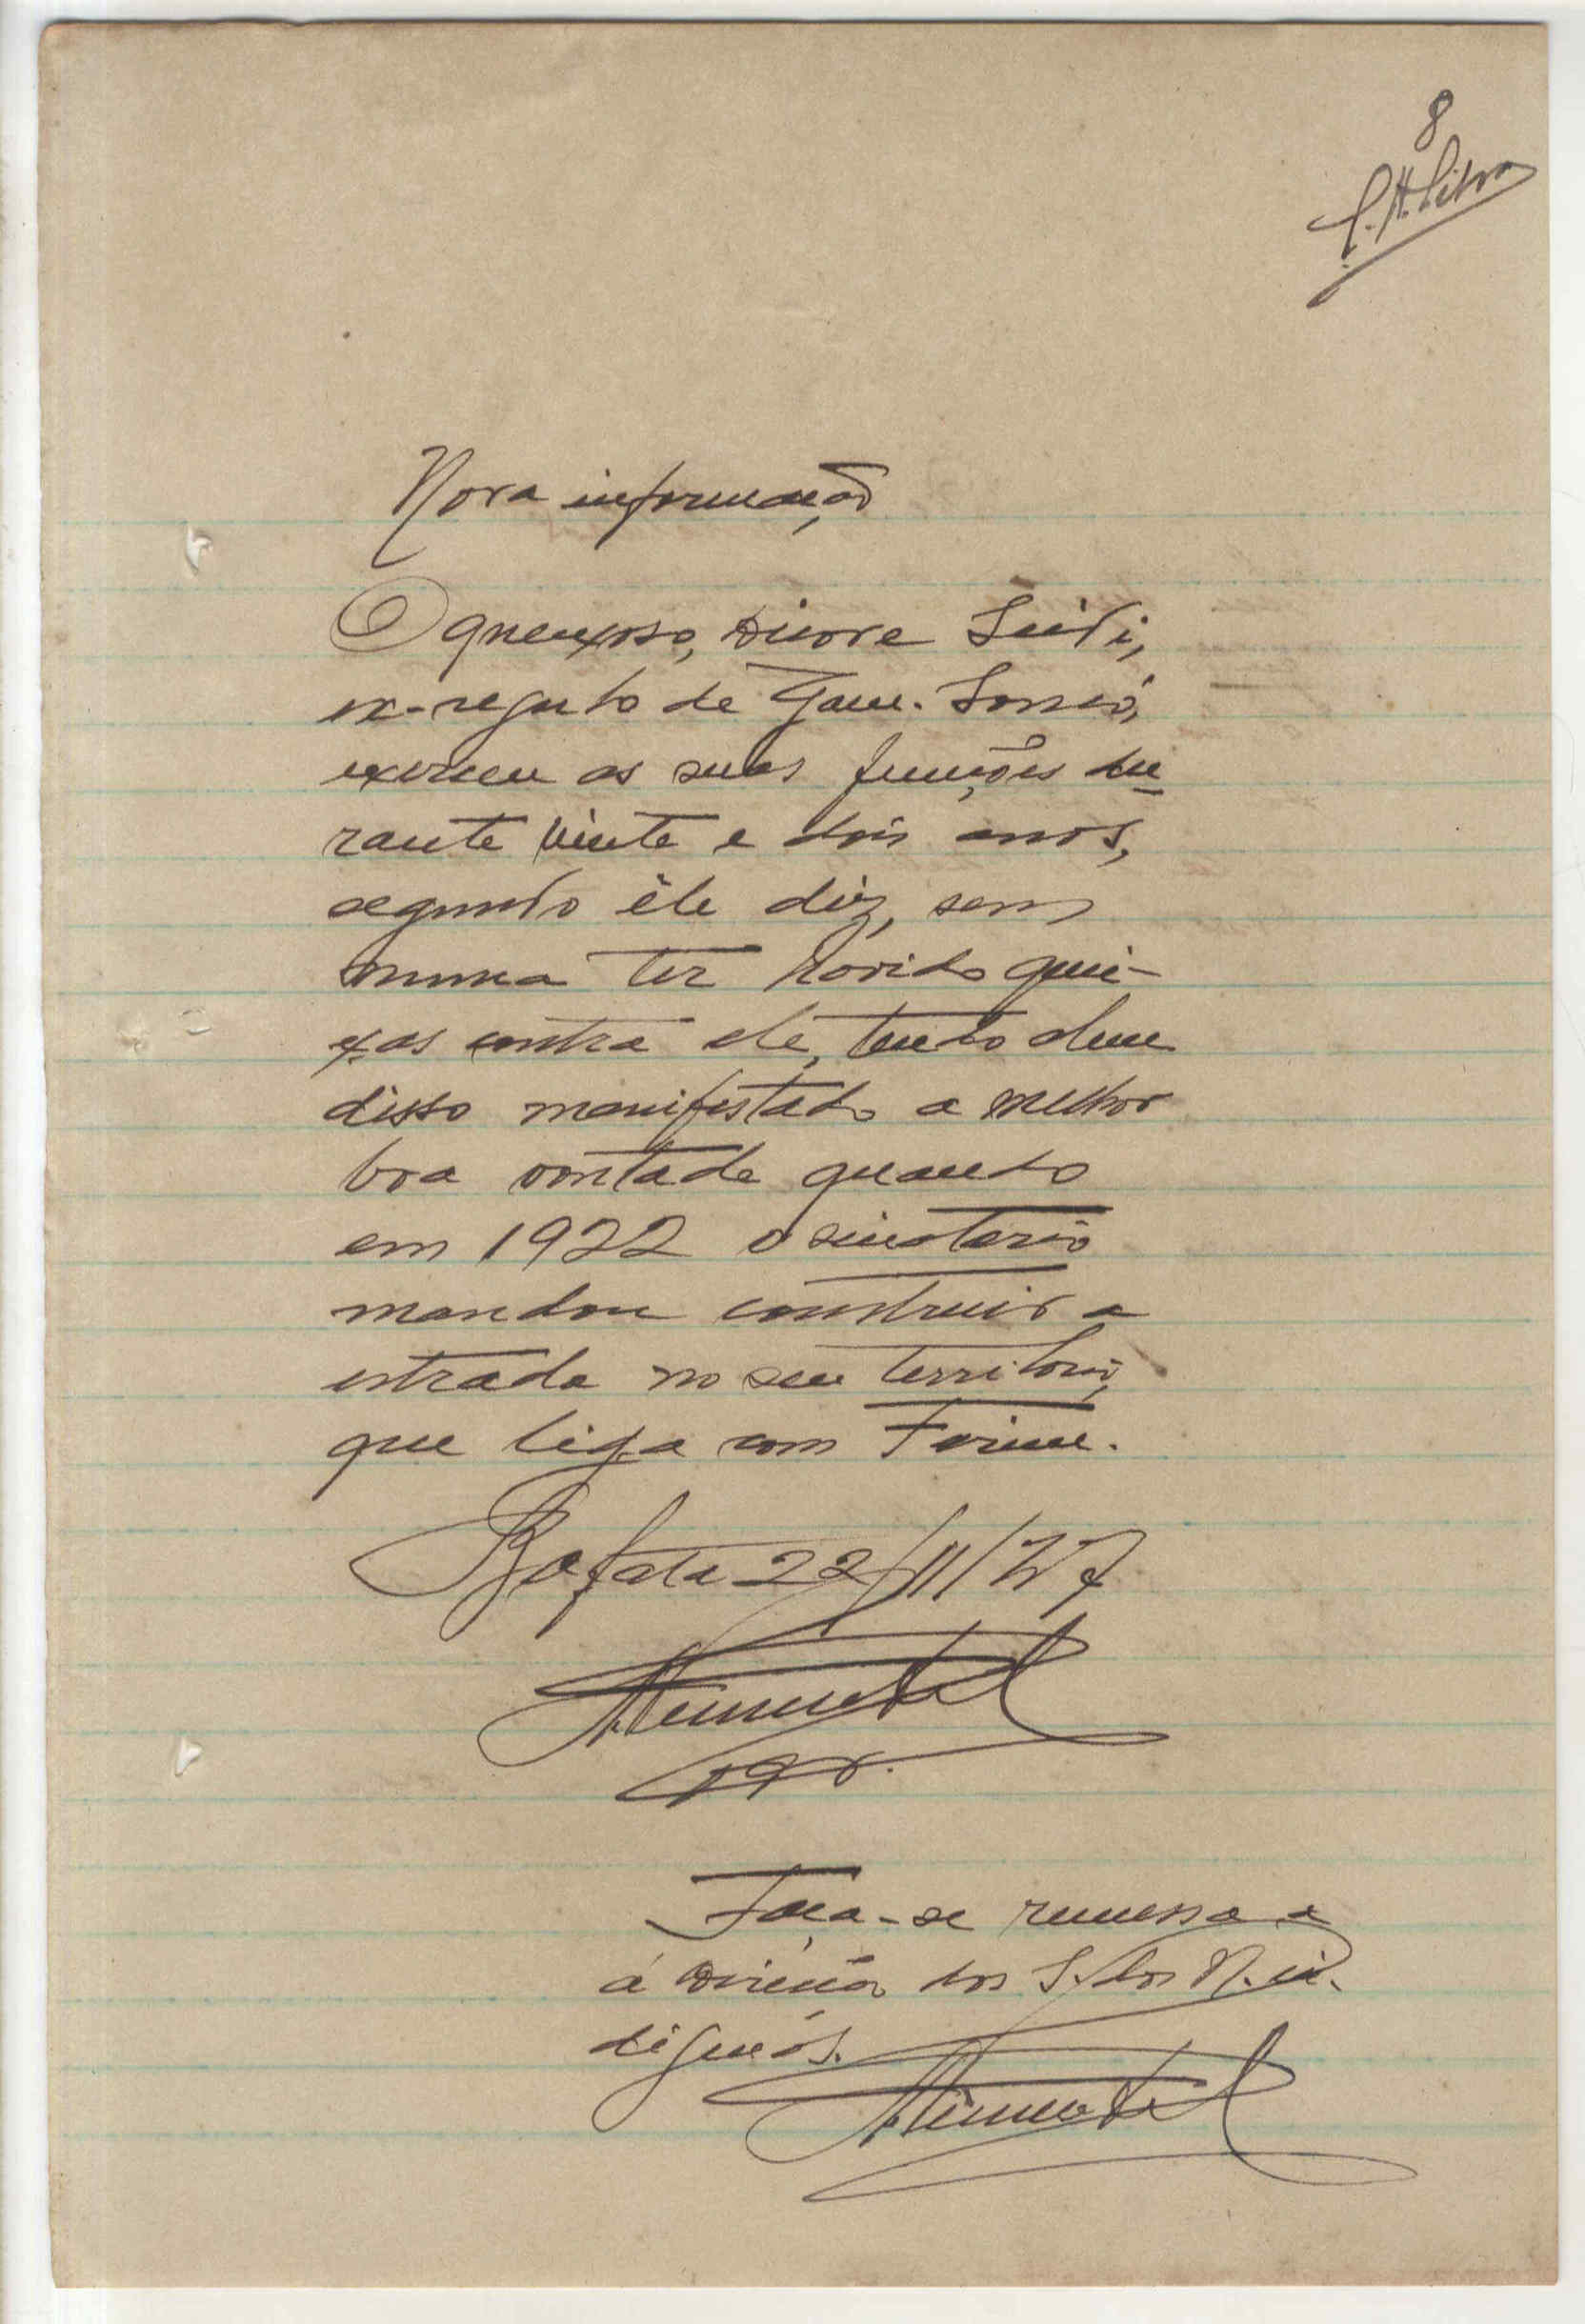 8
Nova informação
O queixoso, Dicore Seidi,
ex-regulo de Gam-Sonsó,
exerceu as suas funções du
rante vinte e dois anos,
segundo êle diz, sem
nunca ter havido quei-
xas contra ele, tendo alem
disso manifestado a melhor
boa vontade quando
em 1922 o sinatario
mandou construir a
estrada no seu territorio,
que liga com Farim.
Bafatá 22/11/27
Faça-se remessa
á Direcção dos S. dos N. in-
digenas.